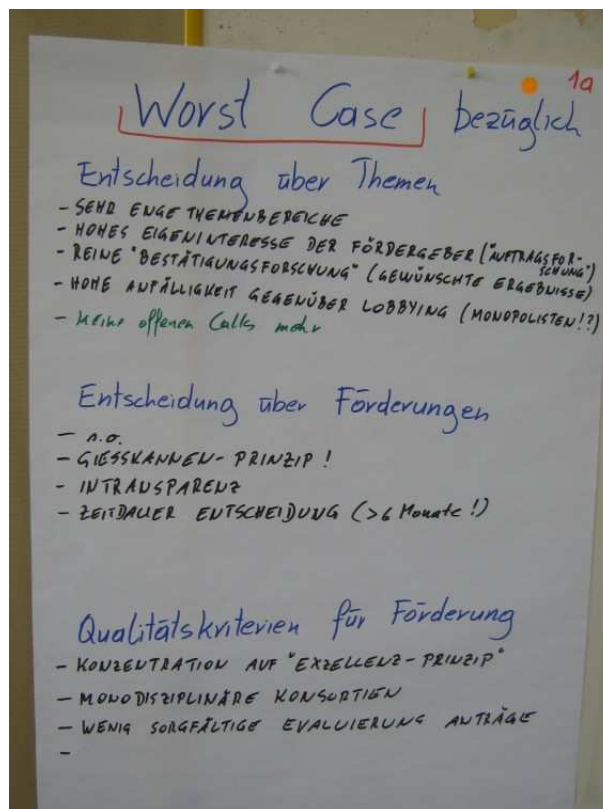 1a
Worst Case bezüglich
Entscheidung über Themen
- SEHR ENGE THEMENBEREICHE
- HOHES EIGENINTERESSE DER FÖRDERGEBER ("AUFTRAGSFOR-
SCHUNG")
- REINE "BESTÄTIGUNGSFORSCHUNG" (GEWÜNSCHTE ERGEBNISSE)
- HOHE ANFÄLLIGKEIT GEGENÜBER LOBBYING (MONOPOLISTEN!?)
- Keine offenen Calls mehr
Entscheidung über Förderungen
- s.o.
- GIESSKANNEN-PRINZIP!
- INTRANSPARENZ
- ZEITDAUER ENTSCHEIDUNG (>6 Monate!)
Qualitätskriterien für Förderung
- KONZENTRATION AUF "EXZELLENZ-PRINZIP"
- MONODISZIPLINÄRE KONSORTIEN
- WENIG SORGFÄLTIGE EVALUIERUNG ANTRÄGE
-